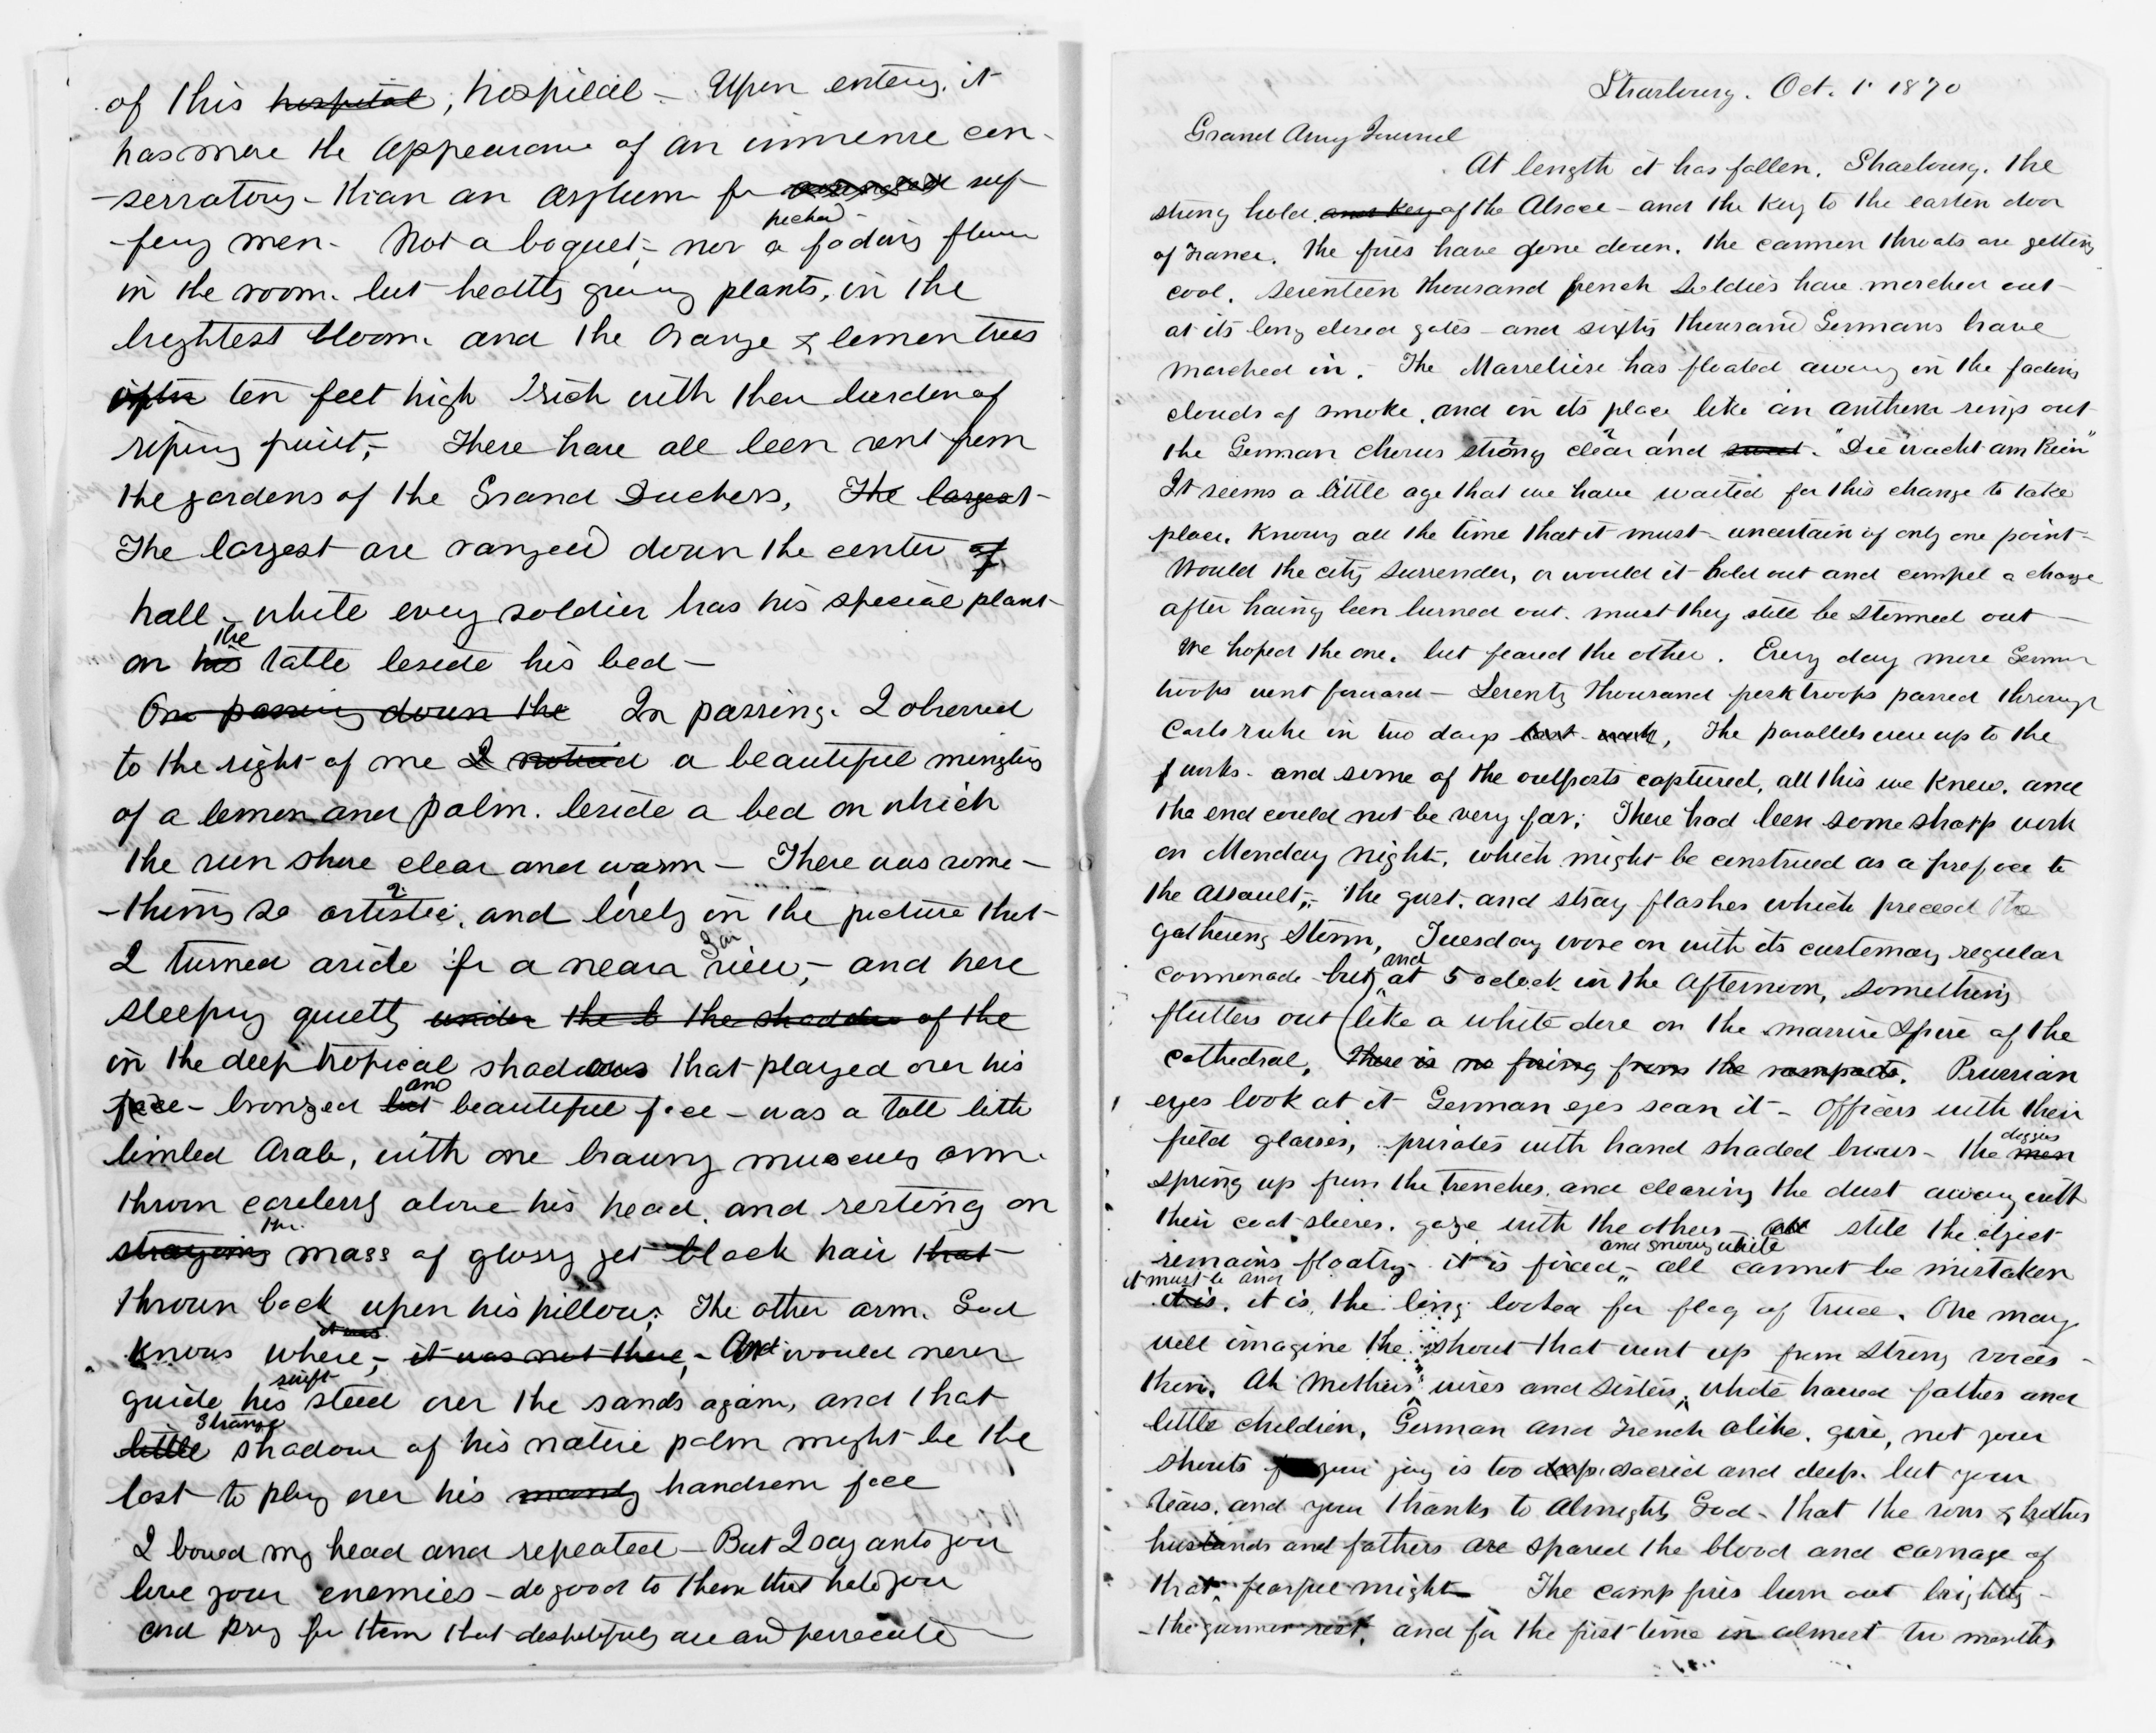 of this hospital, hospital – Upon entery. it
has more the appearance of an immense con-
-servatory – than an asylum for wounded suf-
-fering men – Not a boquet, – nor a picked fading flower
in the room. but healthy growing plants, in the
brightest bloom. and the orange & lemon trees
often ten feet high & rich with their burden of
riping fruit, – These have all been sent from
the gardens of the Grand Duchess, The largest
The largest are ranged down the center of
hall – while every soldier has his special plant
on his the table beside his bed –
On passing down the In passing. I observed
to the right of me I noticed a beautiful mingling
of a lemon and palm. beside a bed on which
the sun shone clear and warm – There was some –
– thing so artistic, and lovely in the picture that
I turned aside for a nearer view, – and here
sleeping quietly under the b the shadow of the
in the deep tropical shadows that played over his
face – bronzed but and beautiful face – was a tall lith
limbed Arab, with one brawny muscues arm
thrown carelessly above his head. and resting on
straying the mass of glossy jet black hair that
thrown back upon his pillow; The other arm. God
knows where, – it was it was not there, – And would never
guide his swift steed over the sands again, and that
little strange shadow of his native palm might be the
last to play over his manly handsom face
I bowed my head and repeated – But I say unto you
love your enemies – do good to them that hate you
and pray for them that despitefully use and persecute
Strasbourg. Oct. 1. 1870
Grand Army Journal
At length it has fallen. Strasbourg. the
strong hold and key of the Alsace – and the key to the eastern door
of France. The fires have gone down. the cannon throats are getting
cool. Seventeen thousand french Soldiers have marched out
at its long closed gates – and sixty thousand Germans have
marched in. The Marseliese has floated away in the fading
clouds of smoke, and in its place like an anthem rings out
the German Chorus strong clear and sweet. "Die wacht am Rein"
It seems a little age that we have waited for this change to take
place. Knowing all the time that it must – uncertain of only one point –
Would the city Surrender, or would it hold out and compel a charge
after having been burned out. must they still be stormed out –
We hoped the one. but feared the other. Every day more German
troops went forward – Seventy thousand fresh troops passed through
Carlsruhe in two days last week, The parallels were up to the
works. and some of the outposts captured, all this we knew. and
the end could not be very far; There had been some sharp work
on Monday night. which might be construed as a preface to
the assault, – the gust. and stray flashes which preceed the
gathering storm, Tuesday wore on with its customary regular
connonade – but, and at 5 oclock in the afternoon, something
flutters out like a white dove on the massive spire of the
cathedral, there is no firing from the ramparts. Prussian
eyes look at it German eyes scan it – Officers with their
field glasses, privates with hand shaded brows – the men diggers
spring up from the trenches. and clearing the dust away with
their coat sleeves. gaze with the others – all still the object
remains floating – it is fixed – and snowy white all cannot be mistaken
it is. it must be and it is, the long looked for flag of truce. One may
well imagine the shout that went up from strong voices –
then. Ah Mothers wives and sisters, white haired fathers and
little children, German and French alike. give, not your
shouts for your joy is too deep sacred and deep. but your
tears. and your thanks to Almighty God – that the sons & brothers
husbands and fathers are spared the blood and carnage of
that fearful night – The camp fires burn out brightly –
– the gunner rest, and for the first time in almost two months